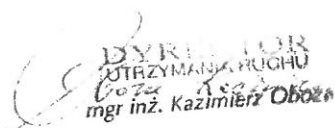 DYREKTOR
UTRZYMANIA RUCHU
mgr inż. Kazimierz Oboza